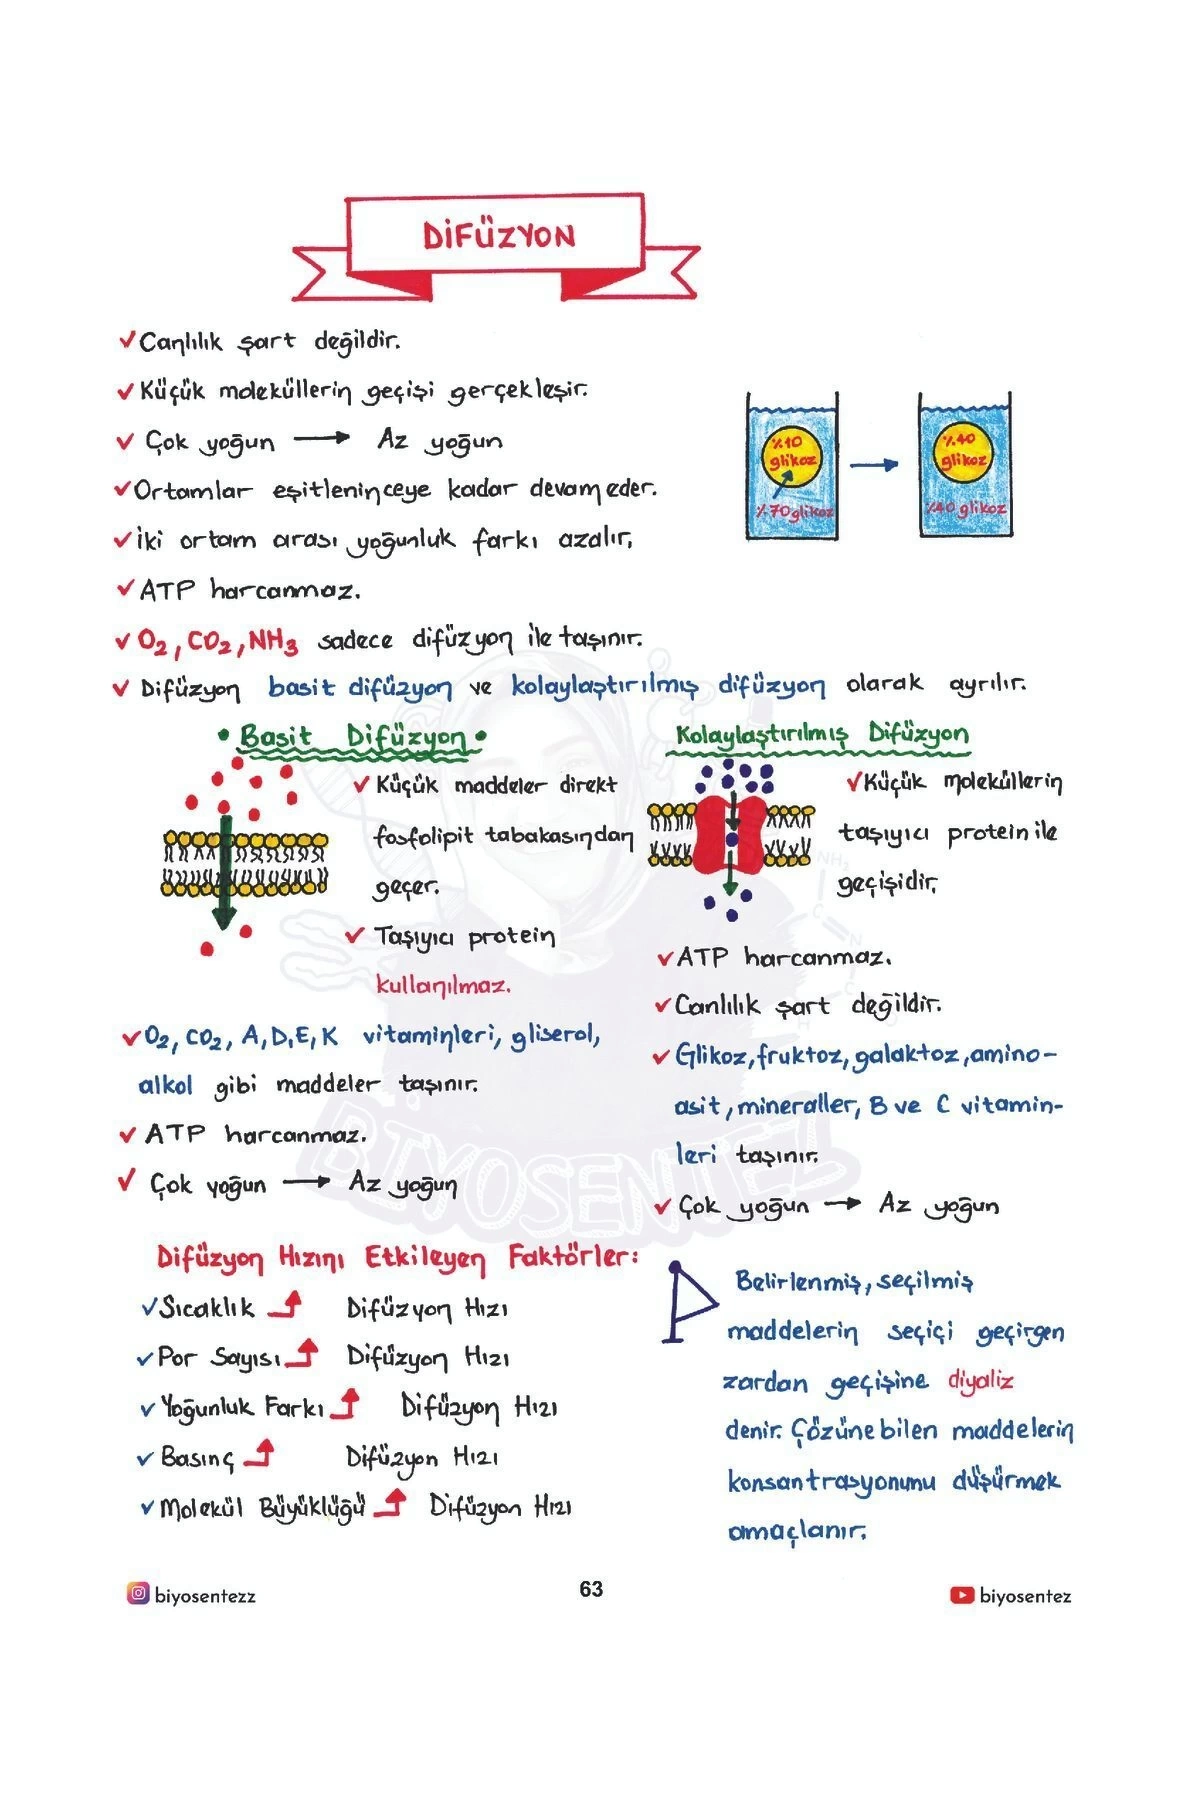 DİFÜZYON
✓Canlılık şart değildir.
✓Küçük moleküllerin geçişi gerçekleşir.
✓ Çok yoğun → Az yoğun
✓Ortamlar eşitleninceye kadar devam eder.
✓İki ortam arası yoğunluk farkı azalır.
✓ATP harcanmaz.
✓O₂, CO₂, NH₃ sadece difüzyon ile taşınır.
✓ Difüzyon basit difüzyon ve kolaylaştırılmış difüzyon olarak ayrılır.
%10
glikoz
%70 glikoz
%40
glikoz
%40 glikoz
• Basit Difüzyon •
✓ Küçük maddeler direkt
fosfolipit tabakasından
geçer.
✓ Taşıyıcı protein
kullanılmaz.
✓O₂, CO₂, A,D,E,K vitaminleri, gliserol,
alkol gibi maddeler taşınır.
✓ ATP harcanmaz.
✓ Çok yoğun → Az yoğun
Kolaylaştırılmış Difüzyon
✓Küçük moleküllerin
taşıyıcı protein ile
geçişidir.
✓ATP harcanmaz.
✓Canlılık şart değildir.
✓Glikoz, fruktoz, galaktoz, amino-
asit, mineraller, B ve C vitamin-
leri taşınır.
✓ Çok yoğun → Az yoğun
NH₂
C
N
C
H
BİYOSENTEZ
Difüzyon Hızını Etkileyen Faktörler:
✓Sıcaklık Difüzyon Hızı
✓Por Sayısı Difüzyon Hızı
✓Yoğunluk Farkı Difüzyon Hızı
✓Basınç Difüzyon Hızı
✓Molekül Büyüklüğü Difüzyon Hızı
Belirlenmiş, seçilmiş
maddelerin seçiçi geçirgen
zardan geçişine diyaliz
denir. Çözünebilen maddelerin
konsantrasyonunu düşürmek
amaçlanır.
biyosentezz
63
biyosentez